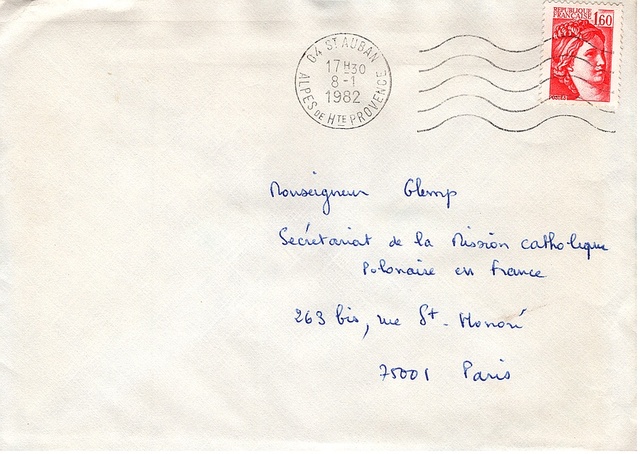 04 ST AUBAN
17H30
8-1
1982
ALPES DE HTE PROVENCE
REPUBLIQUE
FRANÇAISE 1,60
Monseigneur Glemp
Secrétariat de la Mission catholique
Polonaise en France
263 bis, rue St-Honoré
75001 Paris